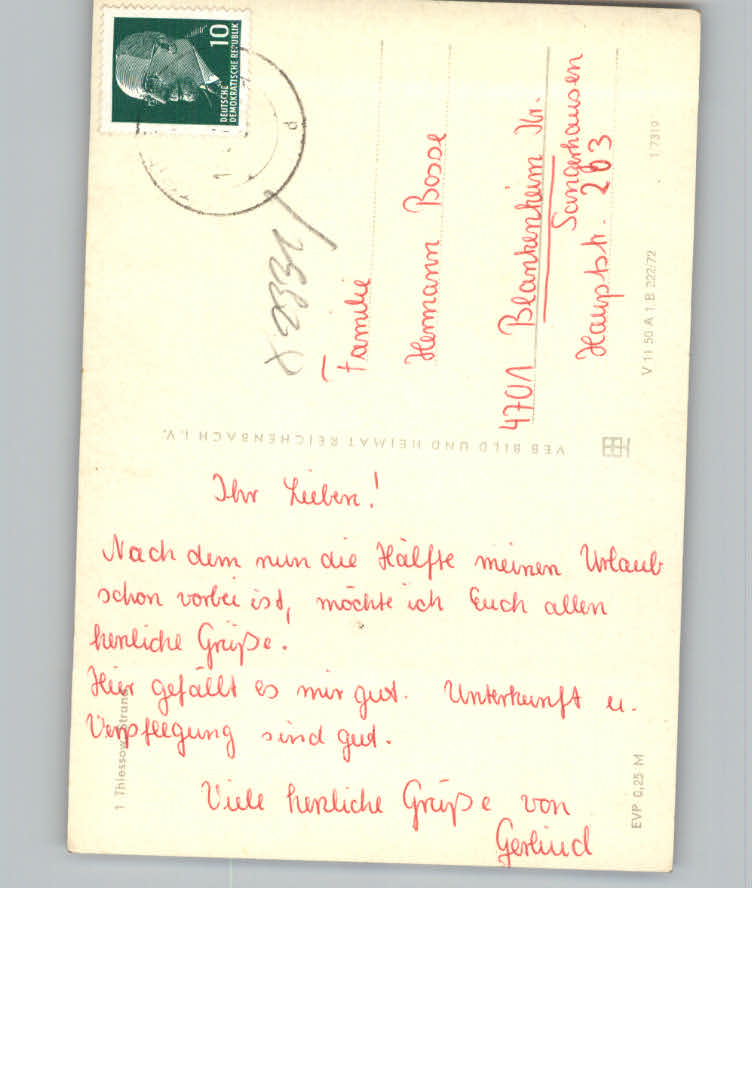 Ihr Lieben!
Nach dem nun die Hälfte meinen Urlaub
schon vorbei ist, möchte ich Euch allen
herzliche Grüße.
Hier gefällt es mir gut. Unterkunft u.
Verpflegung sind gut.
Viele herzliche Grüße von
Gerlind
1 Thiessow, Strand
VEB BILD UND HEIMAT REICHENBACH I.V.
10
DEUTSCHE
DEMOKRATISCHE REPUBLIK
Familie
Hermann Bosse
4701 Blankenheim Kr.
Sangerhausen
Hauptstr. 203
V 11 50 A 1/B 222/72
1/7319
EVP 0,25 M